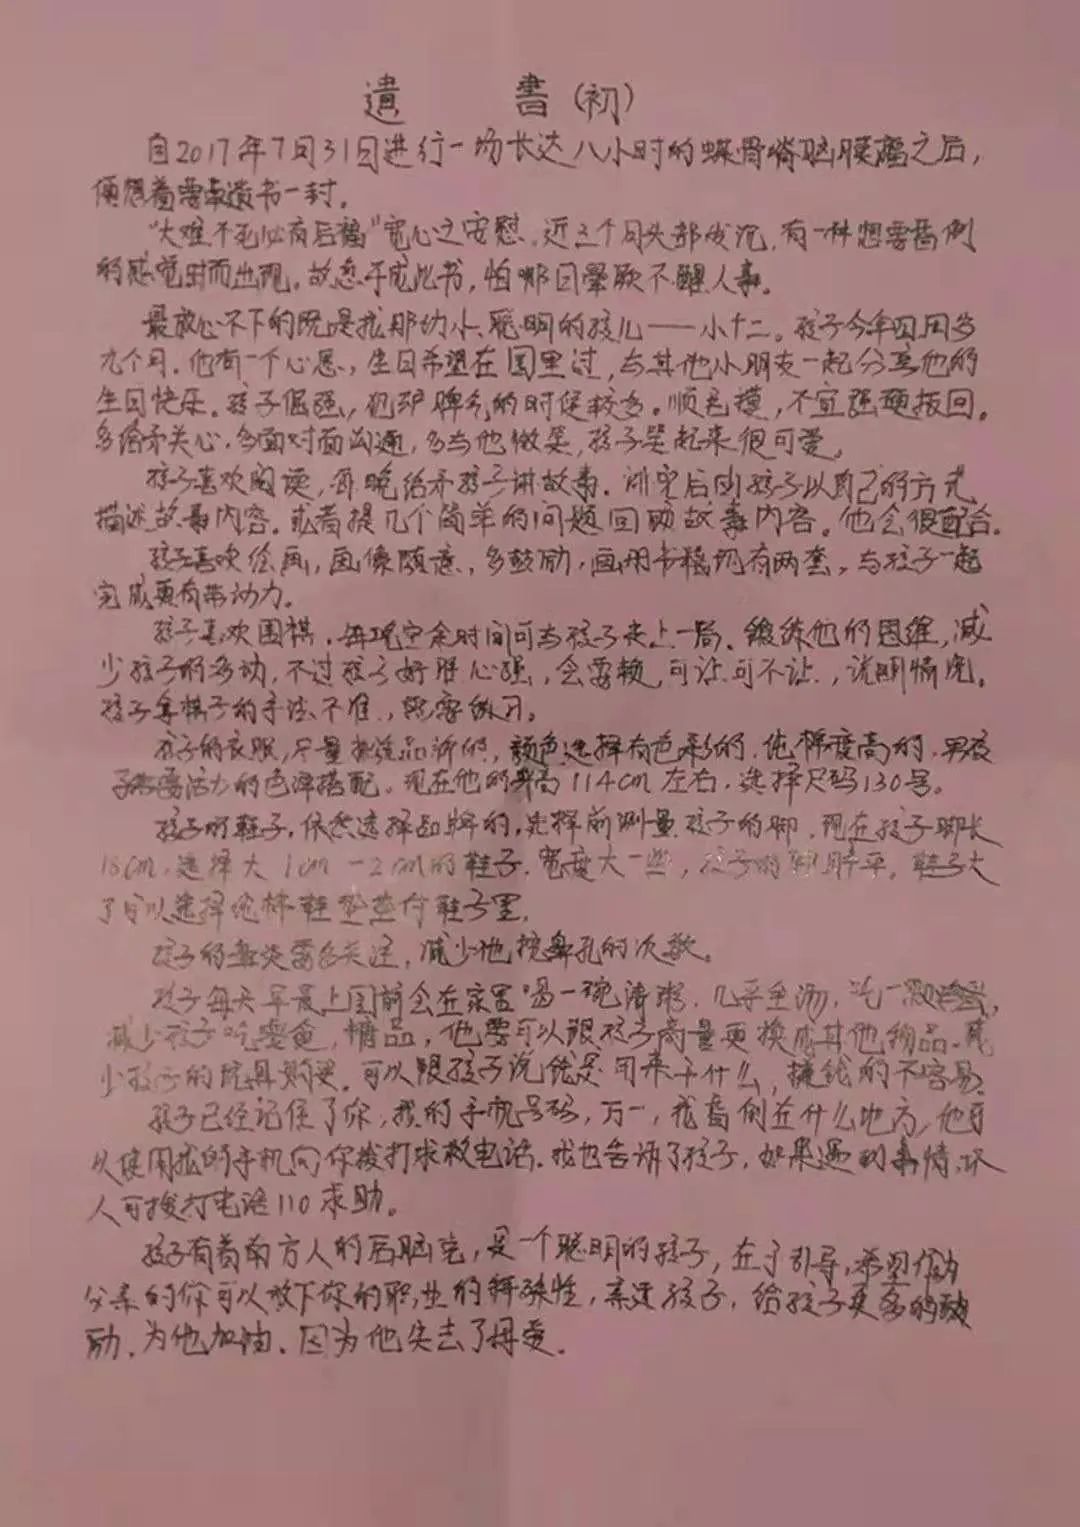 遺 書(初)
自2017年7月31日进行一场长达八小时的蝶骨嵴脑膜瘤之后，
便想着要写遗书一封。
“大难不死必有后福”宽心之安慰，近三个月头部发沉，有一种想要昏倒
的感觉时而出现。故急于成此书，怕哪日晕厥不醒人事。
最放心不下的既是我那幼小、聪明的孩儿——小十二。孩子今年四周多
九个月，他有一个心愿，生日希望在园里过，与其他小朋友一起分享他的
生日快乐。孩子倔强，犯驴脾气的时候较多。顺毛摸，不宜强硬扳回。
多给予关心，多面对面沟通，多与他微笑，孩子笑起来很可爱。
孩子喜欢阅读，每晚给予孩子讲故事。讲完后由孩子以自己的方式
描述故事内容。或者提几个简单的问题回助故事内容。他会很配合。
孩子喜欢绘画，画像随意，多鼓励，画用书籍现有两套，与孩子一起
完成更有带动力。
孩子喜欢围棋，每晚空余时间可与孩子走上一局。锻练他的思维，减
少孩子的多动，不过孩子好胜心强，会耍赖，可让可不让，说明情况。
孩子拿棋子的手法不准，需练习。
孩子的衣服，尽量挑选品牌的，颜色选择有色彩的，纯棉度高的，男孩
子需活力的色泽搭配。现在他的身高114cm左右，选择尺码130号。
孩子的鞋子，依然选择品牌的，选择前测量孩子的脚，现在孩子脚长
18cm，选择大1cm－2cm的鞋子，宽度大一些，孩子的脚胖平。鞋子大
了可以选择纯棉鞋垫垫付鞋子里。
孩子的鼻炎需多关注，减少他挖鼻孔的次数。
孩子每天早晨上园前会在家里喝一碗清粥，几乎全汤，吃一颗
减少孩子吃零食、糖品，他要可以跟孩子商量更换成其他物品。减
少孩子的玩具购买，可以跟孩子说钱是用来干什么，挣钱的不容易。
孩子已经记住了你，我的手机号码，万一，我昏倒在什么地方，他可
以使用我的手机向你拨打求救电话。我也告诉了孩子，如果遇到事情、坏
人可拨打电话110求助。
孩子有着南方人的后脑壳，是一个聪明的孩子，在于引导，希望作为
父亲的你可以放下你的职业的特殊性，亲近孩子，给孩子更多的鼓
励，为他加油。因为他失去了母爱。